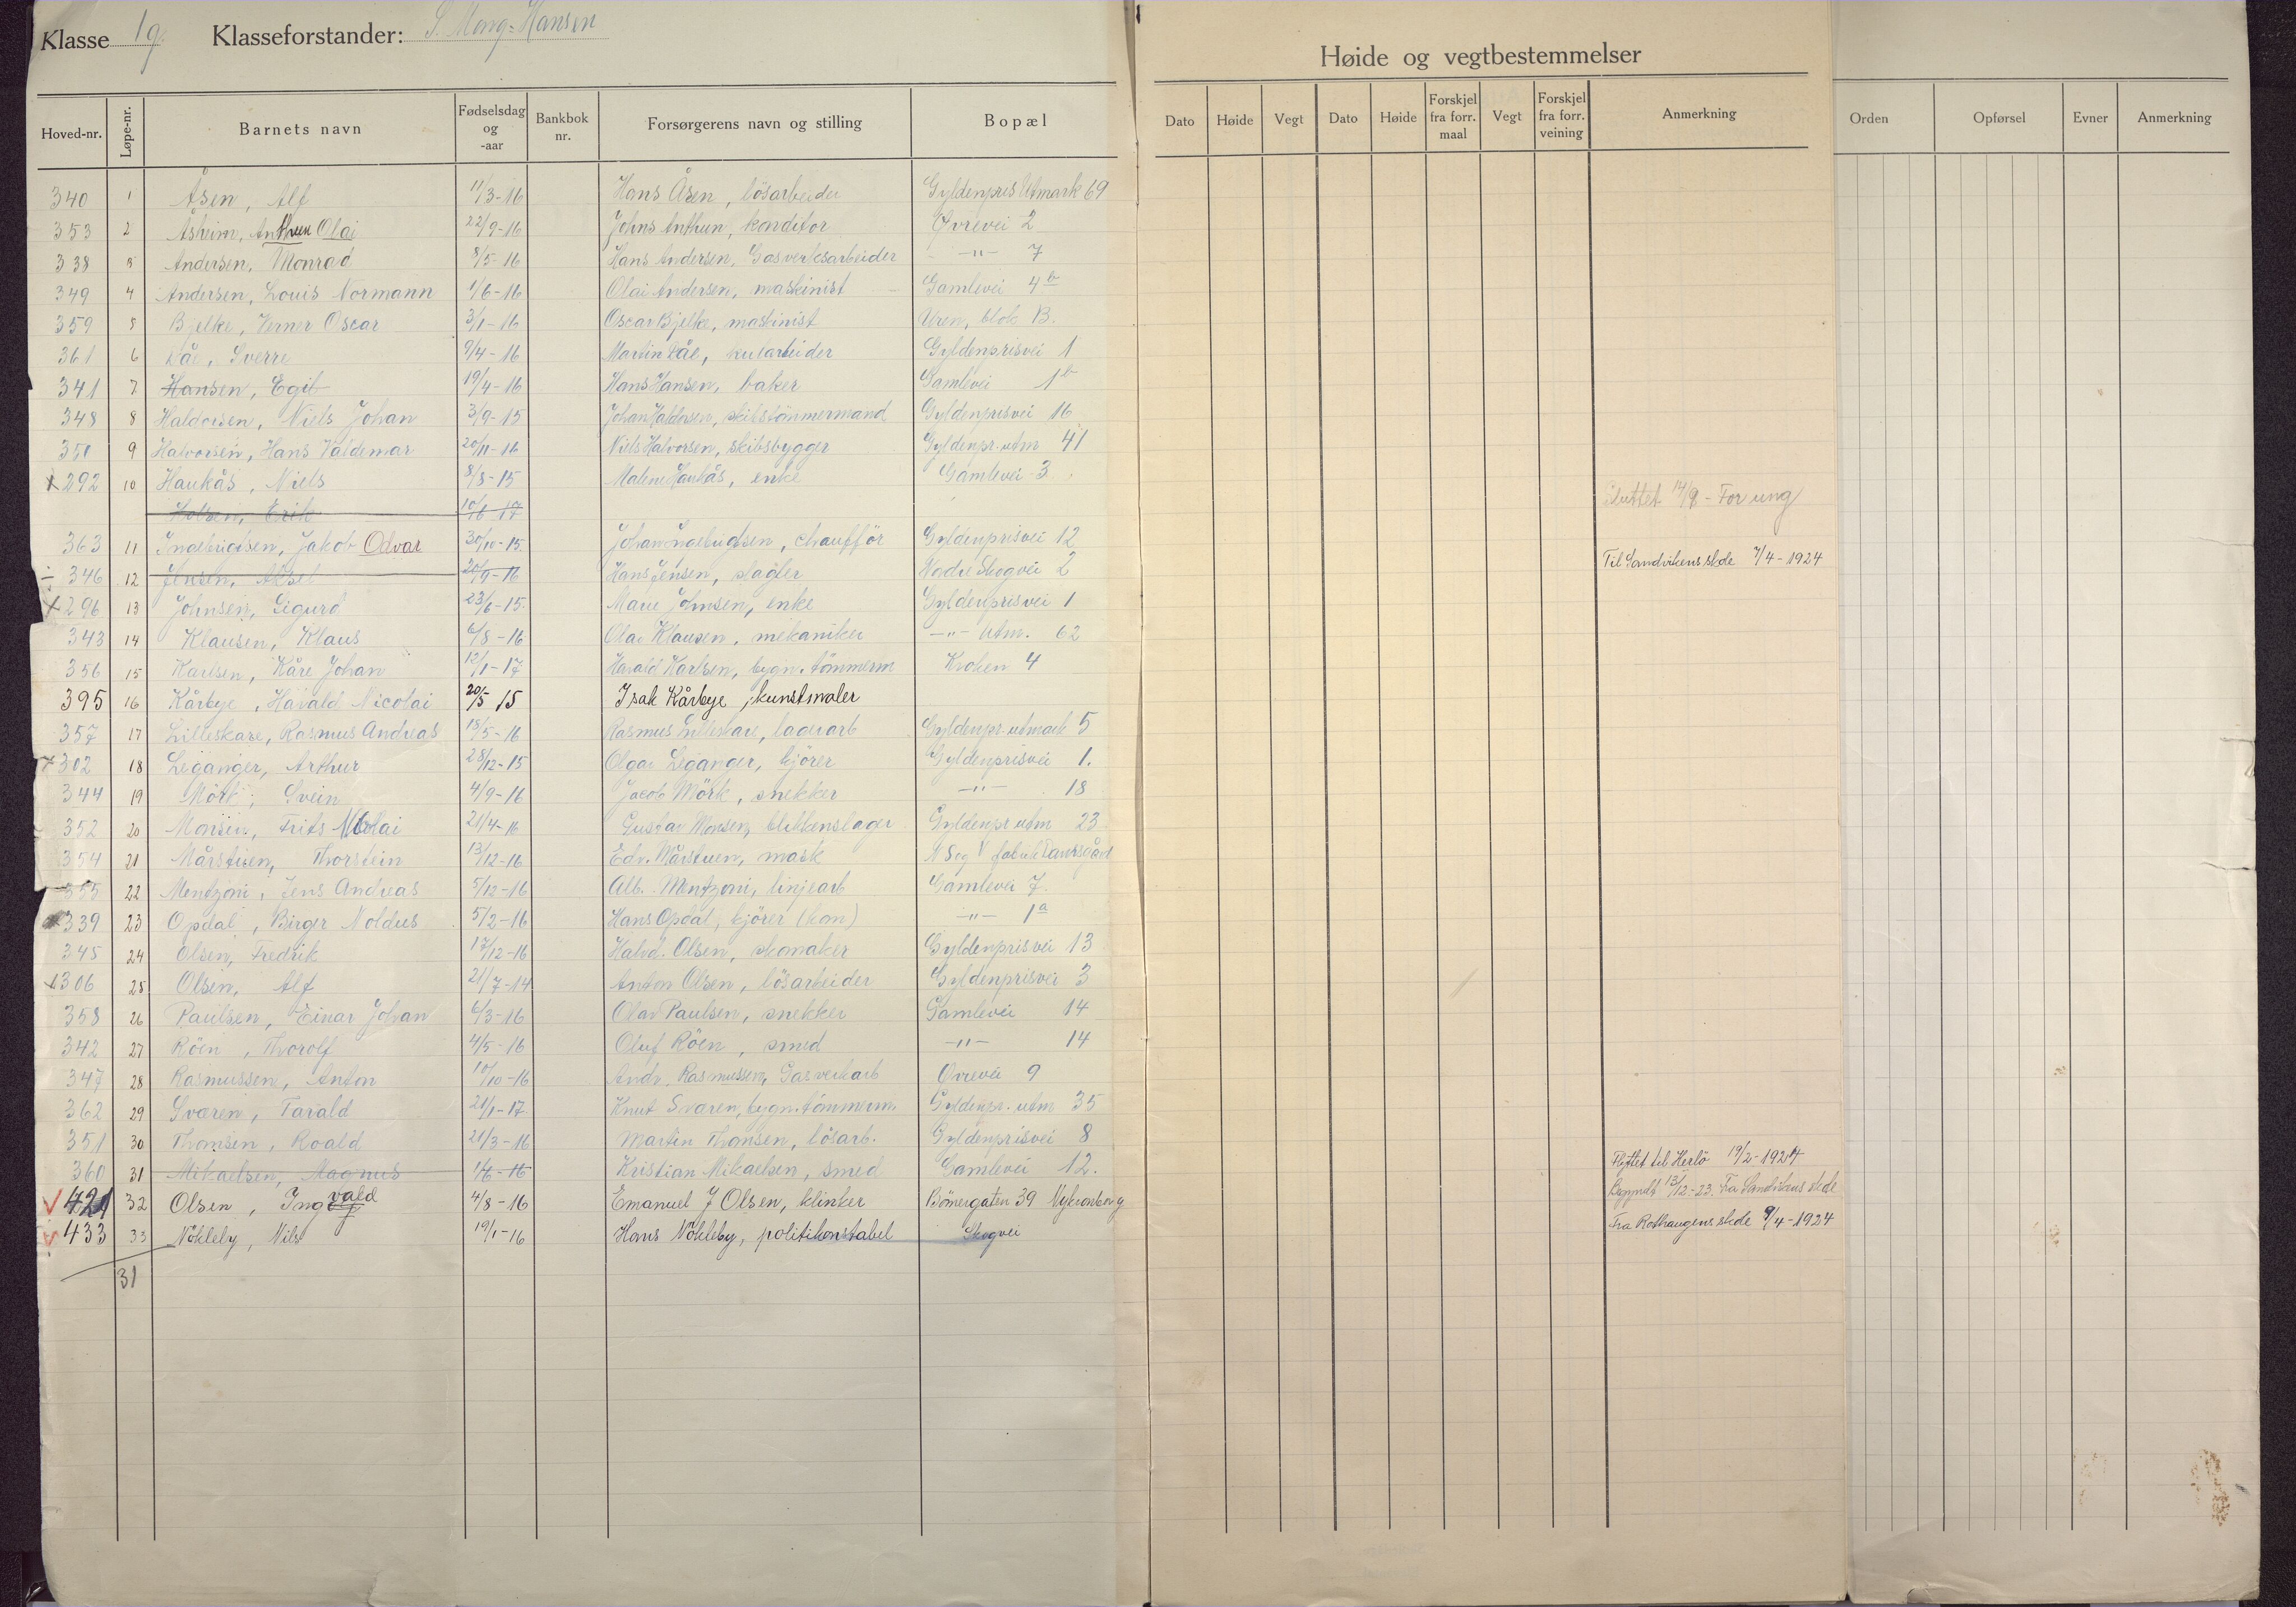 Klasse 1g. Klasseforstander: S. Marg-Hansen
Høide og vegtbestemmelser
Hoved-nr. Løpe-nr. Barnets navn Fødselsdag og -aar Bankbok nr. Forsørgerens navn og stilling Bopæl Dato Høide Vegt Dato Høide Forskjel fra forr. maal Vegt Forskjel fra forr. veining Anmerkning Orden Opførsel Evner Anmerkning
340 1 Åsen, Alf 11/3-16 Hans Åsen, lösarbeider Gyldenpris Utmark 69
353 2 Åsheim, Anthun Olai 22/9-16 Johns Anthun, konditor Øvrevei 2
338 3 Andersen, Monrad 8/5-16 Hans Andersen, Gasverksarbeider -"- 7
349 4 Andersen, Louis Normann 1/6-16 Olai Andersen, maskinist Gamlevei 4b
359 5 Bjelke, Verner Oscar 3/1-16 Oscar Bjelke, maskinist Uren, blok B.
361 6 Sverre 9/4-16 Martin Gyldenprisvei 1
341 7 Hansen, Egil 19/4-16 Hans Hansen, baker Gamlevei 1b
348 8 Haldorsen, Niels Johan 3/9-15 Johan Haldorsen, skibstömmermand Gyldenprisvei 16
350 9 Halvorsen, Hans Valdemar 20/11-16 Niels Halvorsen, skibsbygger Gyldenpr. utm 41
x 292 10 Haukås, Niels 8/8-15 Malene Haukås, enke Gamlevei 3
Holsen, Erik 10/6-17 Sluttet 14/9 - For ung
363 11 Ingebrigtsen, Jakob Odvar 30/10-15. Johan Ingebrigtsen, chaufför Gyldenprisvei 12
÷ 346 12 Jensen, Aksel 20/9-16 Hans Jensen, slagter Nedre Skogvei 2 Til Sandvikens skole 7/4-1924
x 296 13 Johnsen, Sigurd 23/6-15. Marie Johnsen, enke Gyldenprisvei 1
343 14 Klausen, Klaus 6/8-16 Olai Klausen, mekaniker -"- Utm. 62
356 15 Karlsen, Kåre Johan 12/1-17 Harald Karlsen, bygn. tömmerm Kroken 4
395 16 Kårbye, Harald Nicolai 20/5 15 Isak Kårbye, kunstmaler
357 17 Lilleskare, Rasmus Andreas 18/5-16 Rasmus Lilleskare, lagerarb Gyldenpr. utmark 5
x 302 18 Leganger, Arthur 28/12-15 Olga Leganger, kjörer Gyldenprisvei 1.
344 19 Mörk, Svein 4/9-16 Jacob Mörk, snekker -"- 18
352 20 Monsen, Frits Nicolai 21/4-16 Gustav Monsen, blikkenslager Gyldenpr utm 23
354 21 Mårstuen, Thorstein 13/12-16 Edv. Mårstuen, mask fabrik
355 22 Mentzoni, Jens Andreas 5/12-16 Alb. Mentzoni, linjearb Gamlevei 7.
339 23 Opdal, Birger Noldus 5/2-16 Hans Opdal, kjörer (kom) -"- 1a
345 24 Olsen, Fredrik 17/12-16 Halvd. Olsen, skomaker Gyldenprisvei 13
x 306 25 Olsen, Alf 21/7-14 Anton Olsen, lösarbeider Gyldenprisvei 3
358 26 Paulsen, Einar Johan 6/3-16 Olav Paulsen, snekker Gamlevei 14
342 27 Röen, Thorolf 4/5-16 Oluf Röen, smed -"- 14
347 28 Rasmussen, Anton 10/10-16 Andr. Rasmussen, Gasverkarb Övrevei 9
362 29 Sværen, Tarald 21/1-17 Knut Sværen, bygn. tömmerm. Gyldenpr. utm 35
351 30 Thomsen, Roald 21/3-16 Martin Thomsen, lösarb. Gyldenprisvei 8
360 31 Mikaelsen, Magnus 1/6-16 Kristian Mikaelsen, smed Gamlevei 12. Flyttet til Herlö 19/2-1924
v 421 32 Olsen, Ingvald 4/8-16 Emanuel J Olsen, klinker Bömergaten 39 Nykronborg Begyndt 13/12-23. Fra Sandvikens skole
v 433 33 Nökleby, Nils 19/1-16 Hans Nökleby, politikonstabel Skogvei Fra Rothaugens skole 9/4-1924
31